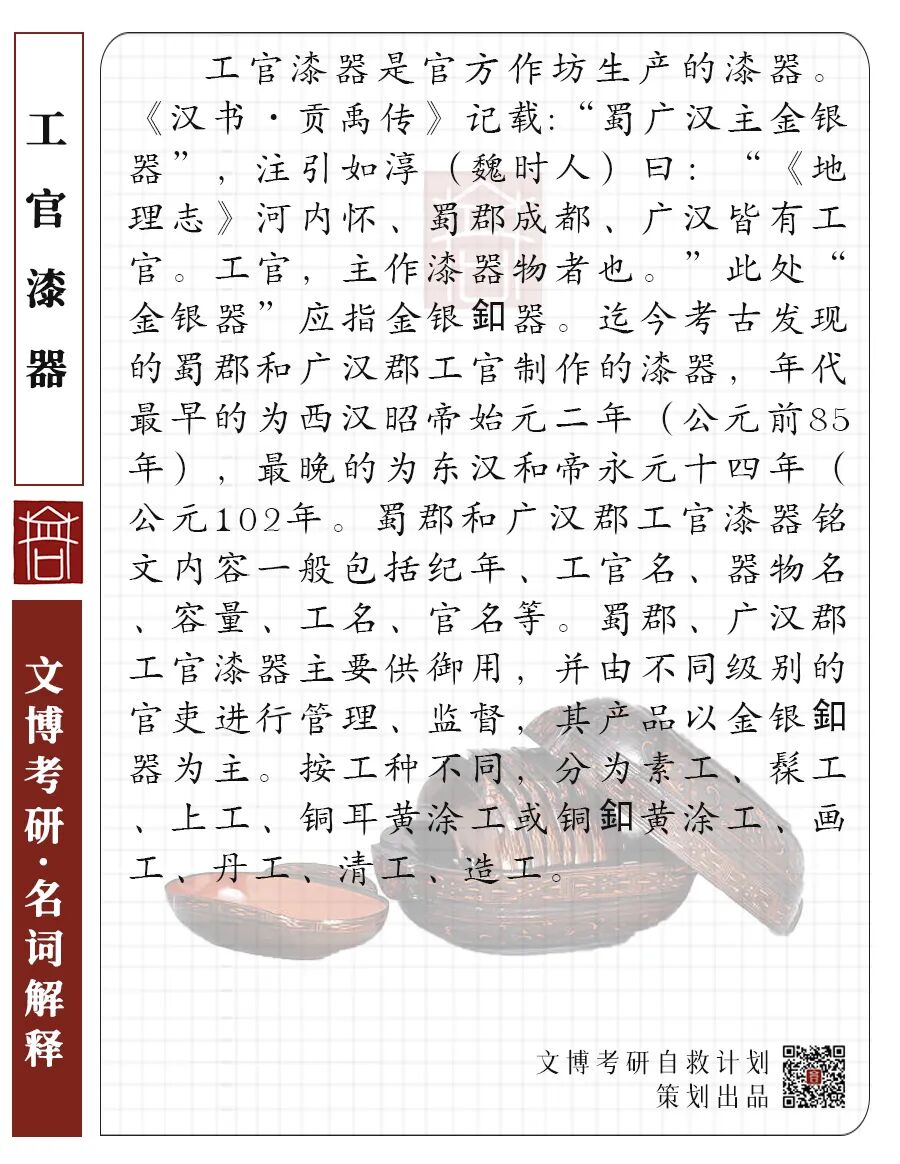 工官漆器
文博考研·名词解释
工官漆器是官方作坊生产的漆器。
《汉书·贡禹传》记载:“蜀广汉主金银
器”，注引如淳（魏时人）曰：“《地
理志》河内怀、蜀郡成都、广汉皆有工
官。工官，主作漆器物者也。”此处“
金银器”应指金银釦器。迄今考古发现
的蜀郡和广汉郡工官制作的漆器，年代
最早的为西汉昭帝始元二年（公元前85
年），最晚的为东汉和帝永元十四年（
公元102年。蜀郡和广汉郡工官漆器铭
文内容一般包括纪年、工官名、器物名
、容量、工名、官名等。蜀郡、广汉郡
工官漆器主要供御用，并由不同级别的
官吏进行管理、监督，其产品以金银釦
器为主。按工种不同，分为素工、髹工
、上工、铜耳黄涂工或铜釦黄涂工、画
工、丹工、清工、造工。
文博考研自救计划
策划出品